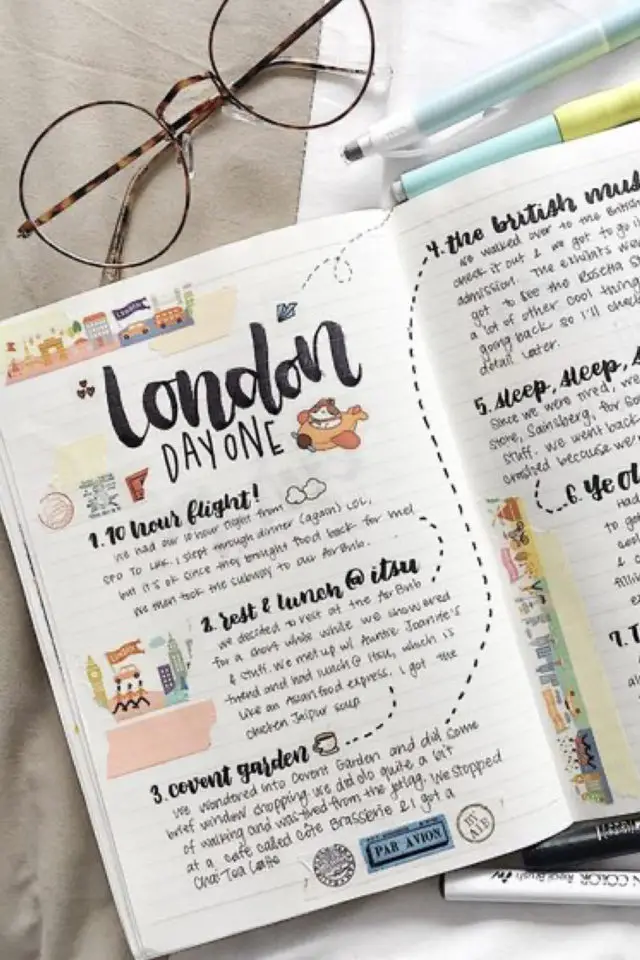 London
DAY ONE
1. 10 hour flight!
We had our 10 hour flight from
SFO to LHR. I slept through dinner (again) LOL,
but it's ok since they brought food back for me!
We then took the subway to our AirBnb.
2. rest & lunch @ itsu
We decided to rest at the AirBnb
for a short while while we showered
& stuff. We met up w/ Auntie Joannie's
friend and had lunch @ itsu, which is
like an Asian food express. I got the
chicken Jaipur soup
3. covent garden
We wondered into Covent Garden and did some
brief window shopping. We did do quite a bit
of walking and was tired from the jetlag. We stopped
at a café called Côte Brasserie & I got a
Chai Tea Latte
PAR AVION
BY AIR
4. the british mus
We walked over to the British
check it out & we got to go
admission. The exhibits were
got to see the Rosetta St
a lot of other cool thing
going back so I'll check
detail later.
5. sleep, sleep, s
Since we were tired, we
store, Sainsberg, for so
stuff. We went back
crashed because wer
6. Ye ol
Had
to go
& c
fillin
7. T